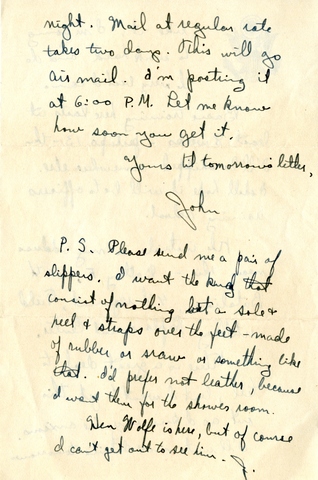 night. Mail at regular rate
takes two days. This will go
air mail. I'm posting it
at 6:00 P.M. Let me know
how soon you get it.
Yours til tomorrow's letter,
John
P.S. Please send me a pair of
slippers. I want the kind that
consist of nothing but a sole &
heel & straps over the feet - made
of rubber or or something like
that. I'd prefer not leather, because
I want them for the shower room.
Wolfe is here, but of course
I can't get out to see him. J.